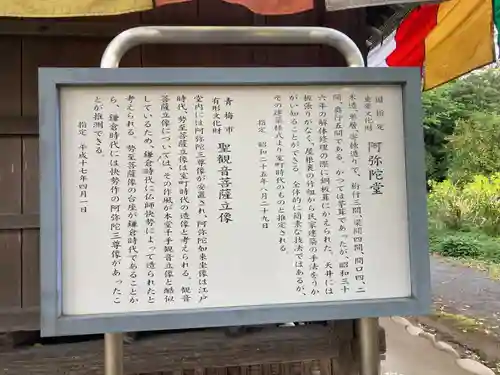 国指定
重要文化財 阿弥陀堂
木造、単層、寄棟造りで、桁行三間、梁間四間、間口四、二
間、奥行五間である。かつては茅葺であったが、昭和三十
六年の解体修理の際に銅板葺にかえられた。天井には
板張りがなく、屋根裏の竹組から民家建築の手法をうか
がい知ることができる。全体的に簡素な技法ではあるが、
その建築様式より室町時代のものと推定される。
指定 昭和二十五年八月二十九日
青梅市
有形文化財 聖観音菩薩立像
堂内には阿弥陀三尊像が安置され、阿弥陀如来坐像は江戸
時代、勢至菩薩像は室町時代の造像と考えられる。観音
菩薩立像については、その作風が本堂千手観音立像と酷似
しているため、鎌倉時代に仏師快勢によって造られたと
考えられる。勢至菩薩像の台座が鎌倉時代であることか
ら、鎌倉時代には快勢作の阿弥陀三尊像があったこ
とが推測できる。
指定 平成十七年四月一日